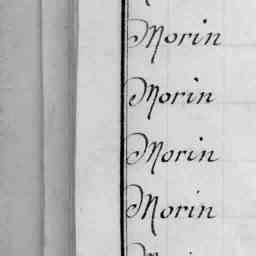 Morin
Morin
Morin
Morin